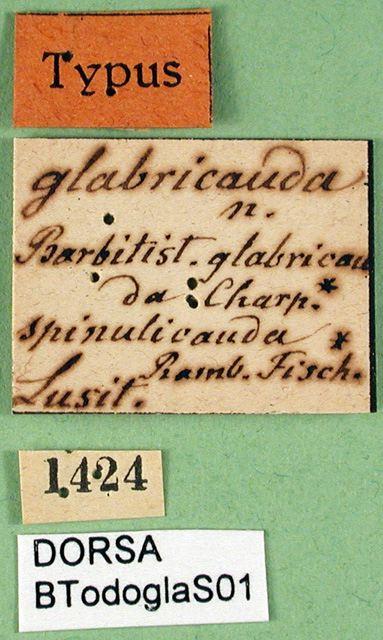 Typus
glabricauda
n.
Barbitist. glabricau
da Charp.*
spinulicauda *
Ramb. Fisch.
Lusit.
1424
DORSA
BTodoglaS01